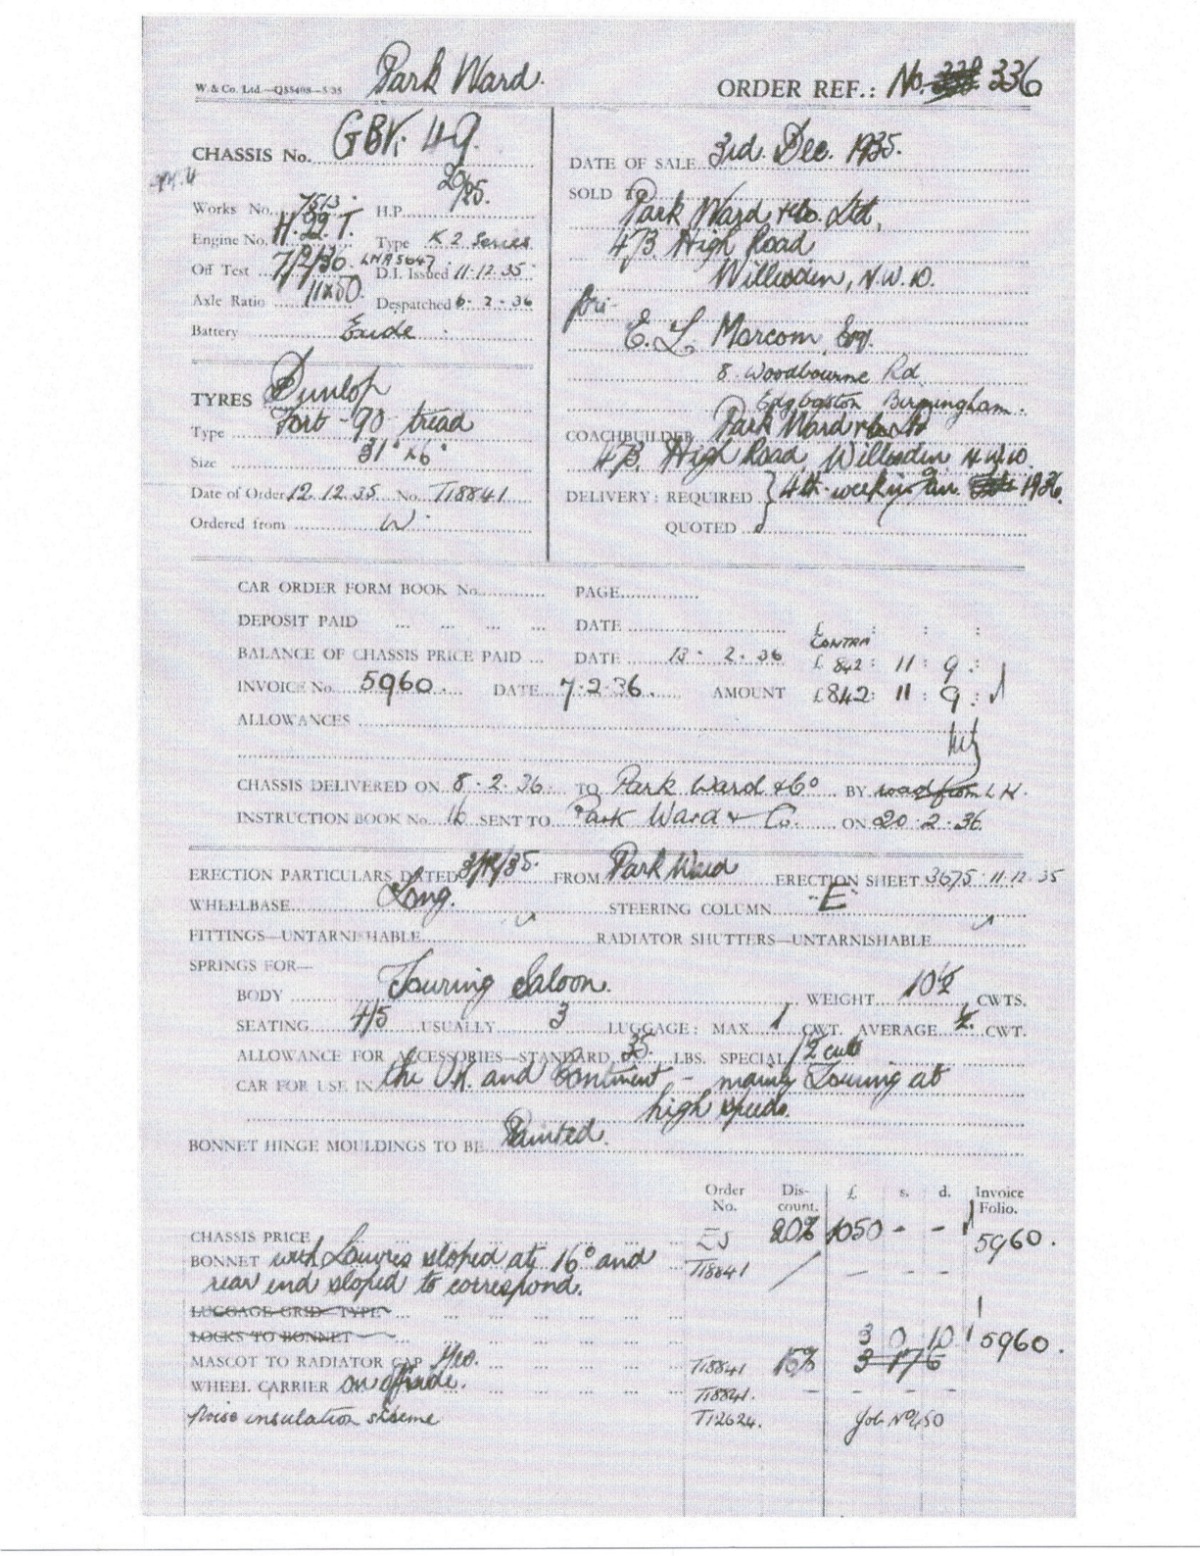 W. & Co. Ltd.—Q55408—5/35 Park Ward. ORDER REF.: No. 336
CHASSIS No. GBK. 49.
DATE OF SALE 3rd. Dec. 1935.
Works No. 7513. H.P. 20/25.
SOLD TO Park Ward & Co. Ltd,
Engine No. H.22.T. Type K 2 Series
473. High Road
Off Test 7/2/36. D.I. Issued 11.12.35
Willesden, N.W.10.
Axle Ratio 11x50 Despatched 6.2.36
for:-
Battery Exide
E. L. Marcom, Esq.
8 Woodbourne Rd
TYRES Dunlop
Edgbaston Birmingham.
Type Fort-90 tread
COACHBUILDER Park Ward & Co Ltd
Size 31" x 6"
473. High Road, Willesden N.W.10.
Date of Order 12.12.35 No. T18841
DELIVERY: REQUIRED 4th week in Jan. 1936.
Ordered from W.
QUOTED
CAR ORDER FORM BOOK No. PAGE
DEPOSIT PAID ... ... ... ... DATE £ : : :
CONTRA
BALANCE OF CHASSIS PRICE PAID ... DATE 13. 2.36 £ 842: 11: 9:
INVOICE No. 5960. DATE 7.2.36. AMOUNT £842: 11: 9:
ALLOWANCES
CHASSIS DELIVERED ON 8.2.36 TO Park Ward & Co BY road from L.H.
INSTRUCTION BOOK No. 16 SENT TO Park Ward & Co. ON 20.2.36.
ERECTION PARTICULARS DATED 3/12/35. FROM Park Ward ERECTION SHEET 3675.11.12.35
WHEELBASE Long. STEERING COLUMN "E"
FITTINGS—UNTARNISHABLE RADIATOR SHUTTERS—UNTARNISHABLE
SPRINGS FOR—
BODY Touring Saloon. WEIGHT 10½ CWTS.
SEATING 4/5 USUALLY 3 LUGGAGE: MAX 1 CWT. AVERAGE ½. CWT.
ALLOWANCE FOR ACCESSORIES—STANDARD 35. LBS. SPECIAL
CAR FOR USE IN the UK. and Continent - mainly Touring at
high speeds.
BONNET HINGE MOULDINGS TO BE Painted.
Order No. Dis- count. £ s. d. Invoice Folio.
CHASSIS PRICE 20% 1050 - - 5960.
BONNET with Louvres sloped at 16° and T18841 - - -
rear end sloped to correspond.
LUGGAGE GRID TYPE
LOCKS TO BONNET 3 0 10 5960.
MASCOT TO RADIATOR CAP Yes. T18841 15% 3 17 6
WHEEL CARRIER on offside. T18841. - - -
Noise insulation scheme T12624. Job No 450